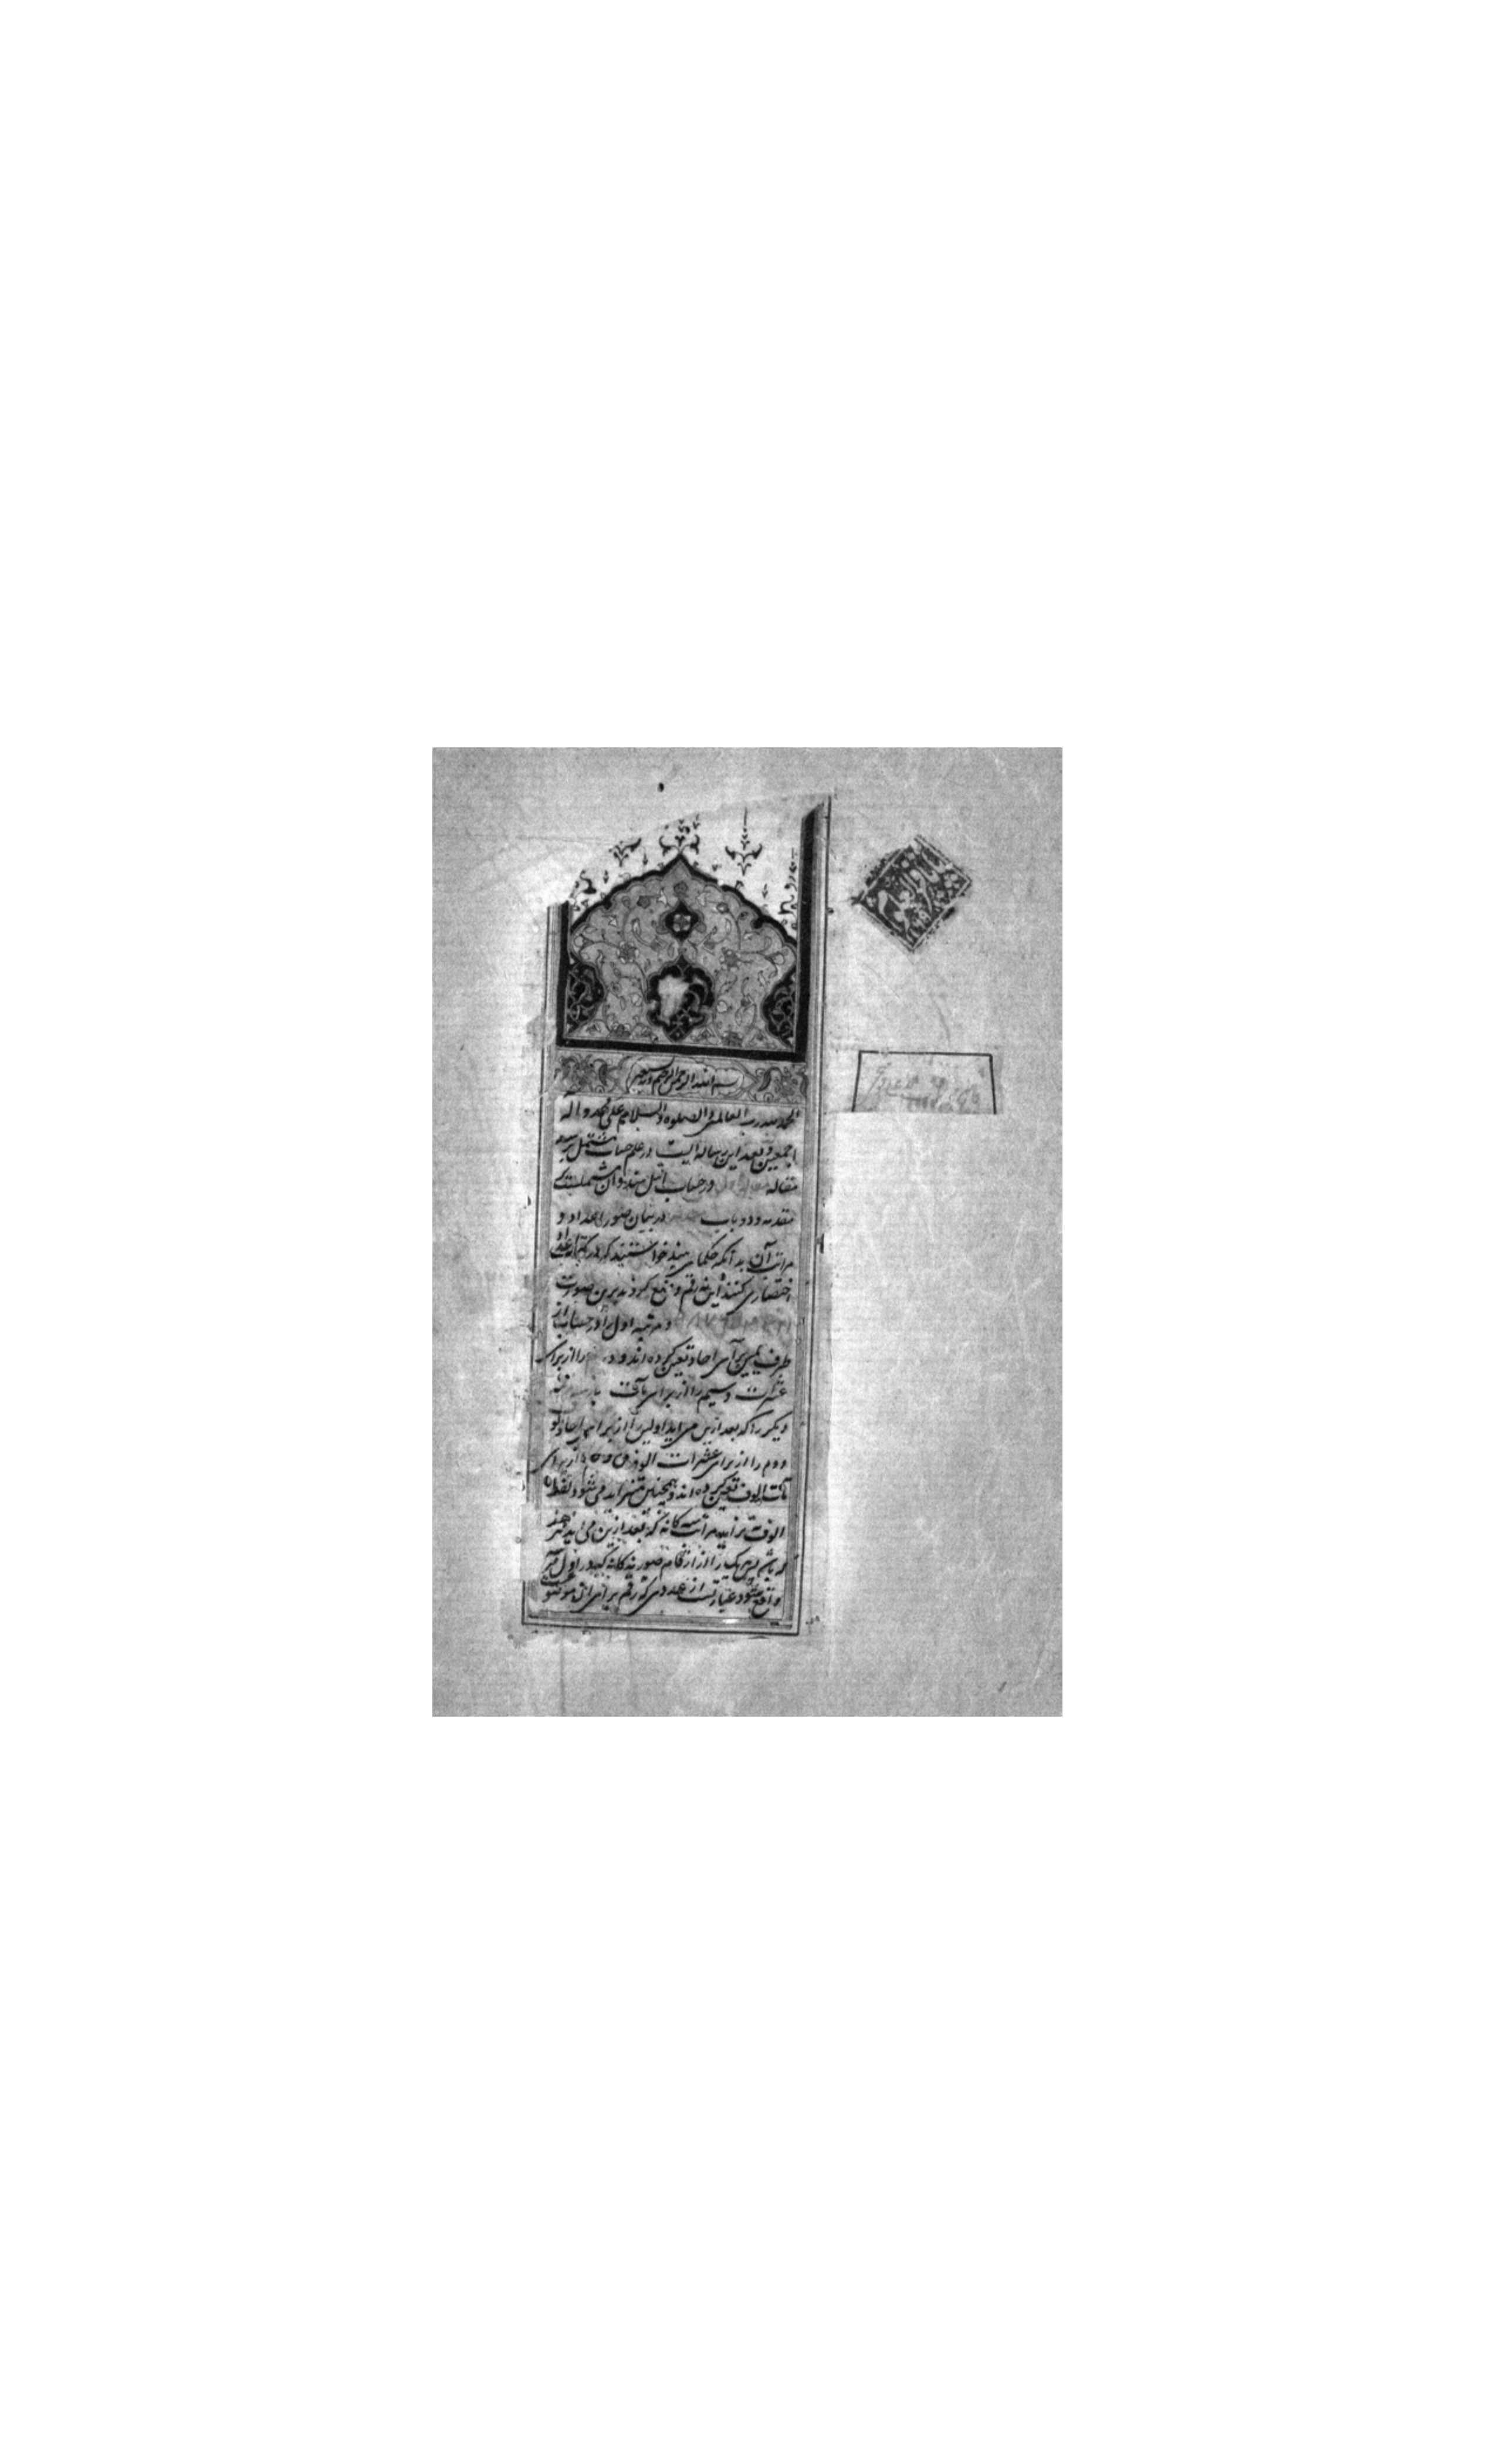 بسم الله الرحمن الرحیم و به نستعین
الحمد لله رب العالمین والصلوة والسلام علی محمد و آله
اجمعین و بعد این رساله ایست در علم حساب مشتمل بر سه
مقاله در حساب اهل هند و آن مشتملست بر
مقدمه و دو باب در بیان صور اعداد و
مراتب آن بدانکه حکمای هند خواستند که در کتابت عدد
اختصاری کنند این نه رقم وضع کردند برین صورت
و مرتبه اول را در حساب از
طرف یمین برای احاد تعیین کرده اند و را از برای
عشرات و سیم را از برای مآت
دیگر را که بعد ازین می آید اولین را از برای احاد الوف
دوم را از برای عشرات الوف و از برای
مآت الوف تعیین کرده اند و همچنین متزاید می شود لفظ
الوف به تزاید مراتب سه کانه که بعد ازین می آید
پس هر یک را از ارقام صور نه کانه که در اول مرتبه
واقع شود عبارتست از عددی که رقم برای آن موضوع